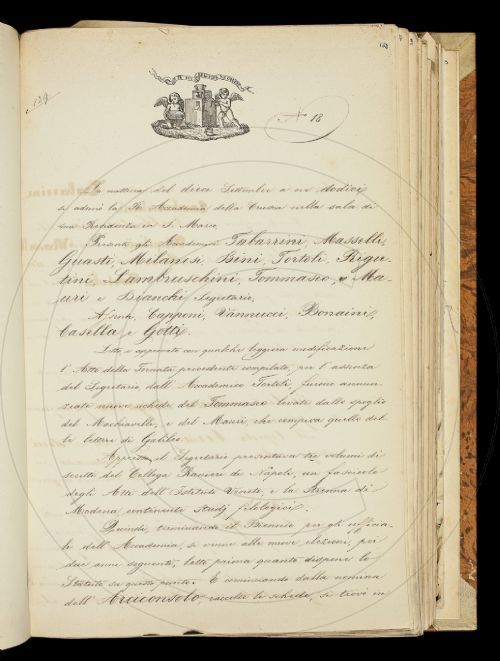 c. 139
N.° 18
La mattina del dieci Settembre a ore dodici
si adunò la R. Accademia della Crusca nella sala di
sua Residenza in S. Marco.
Presenti gli Accademici Tabarrini, Masselli,
Guasti, Milanesi, Bini, Tortoli, Rigu-
tini, Lambruschini, Tommaseo, e Mau-
ri e Bianchi Segretario.
Assenti, Capponi, Vannucci, Bonaini,
Casella, e Gotti.
Letto e approvato con qualche leggiera modificazione
l'Atto della Tornata precedente compilato, per l'assenza
del Segretario dall'Accademico Tortoli, furono annun-
ziate nuove schede del Tommaseo levate dallo spoglio
del Machiavelli, e del Mauri, che compieva quello del-
le lettere di Galileo.
Appresso il Segretario presentava tre volumi di
scritti del Collega Ranieri di Napoli, un fascicolo
degli Atti dell'Istituto Veneto, e la Strenna di
Modena contenente Studj filologici.
Quindi, terminando il Biennio per gli ufficia-
li dell'Accademia, si venne alle nuove elezioni, per
due anni seguenti, letto prima quanto dispone lo
Statuto su questo punto. E cominciando dalla nomina
dell'Arciconsolo, raccolte le schede, si trovò in